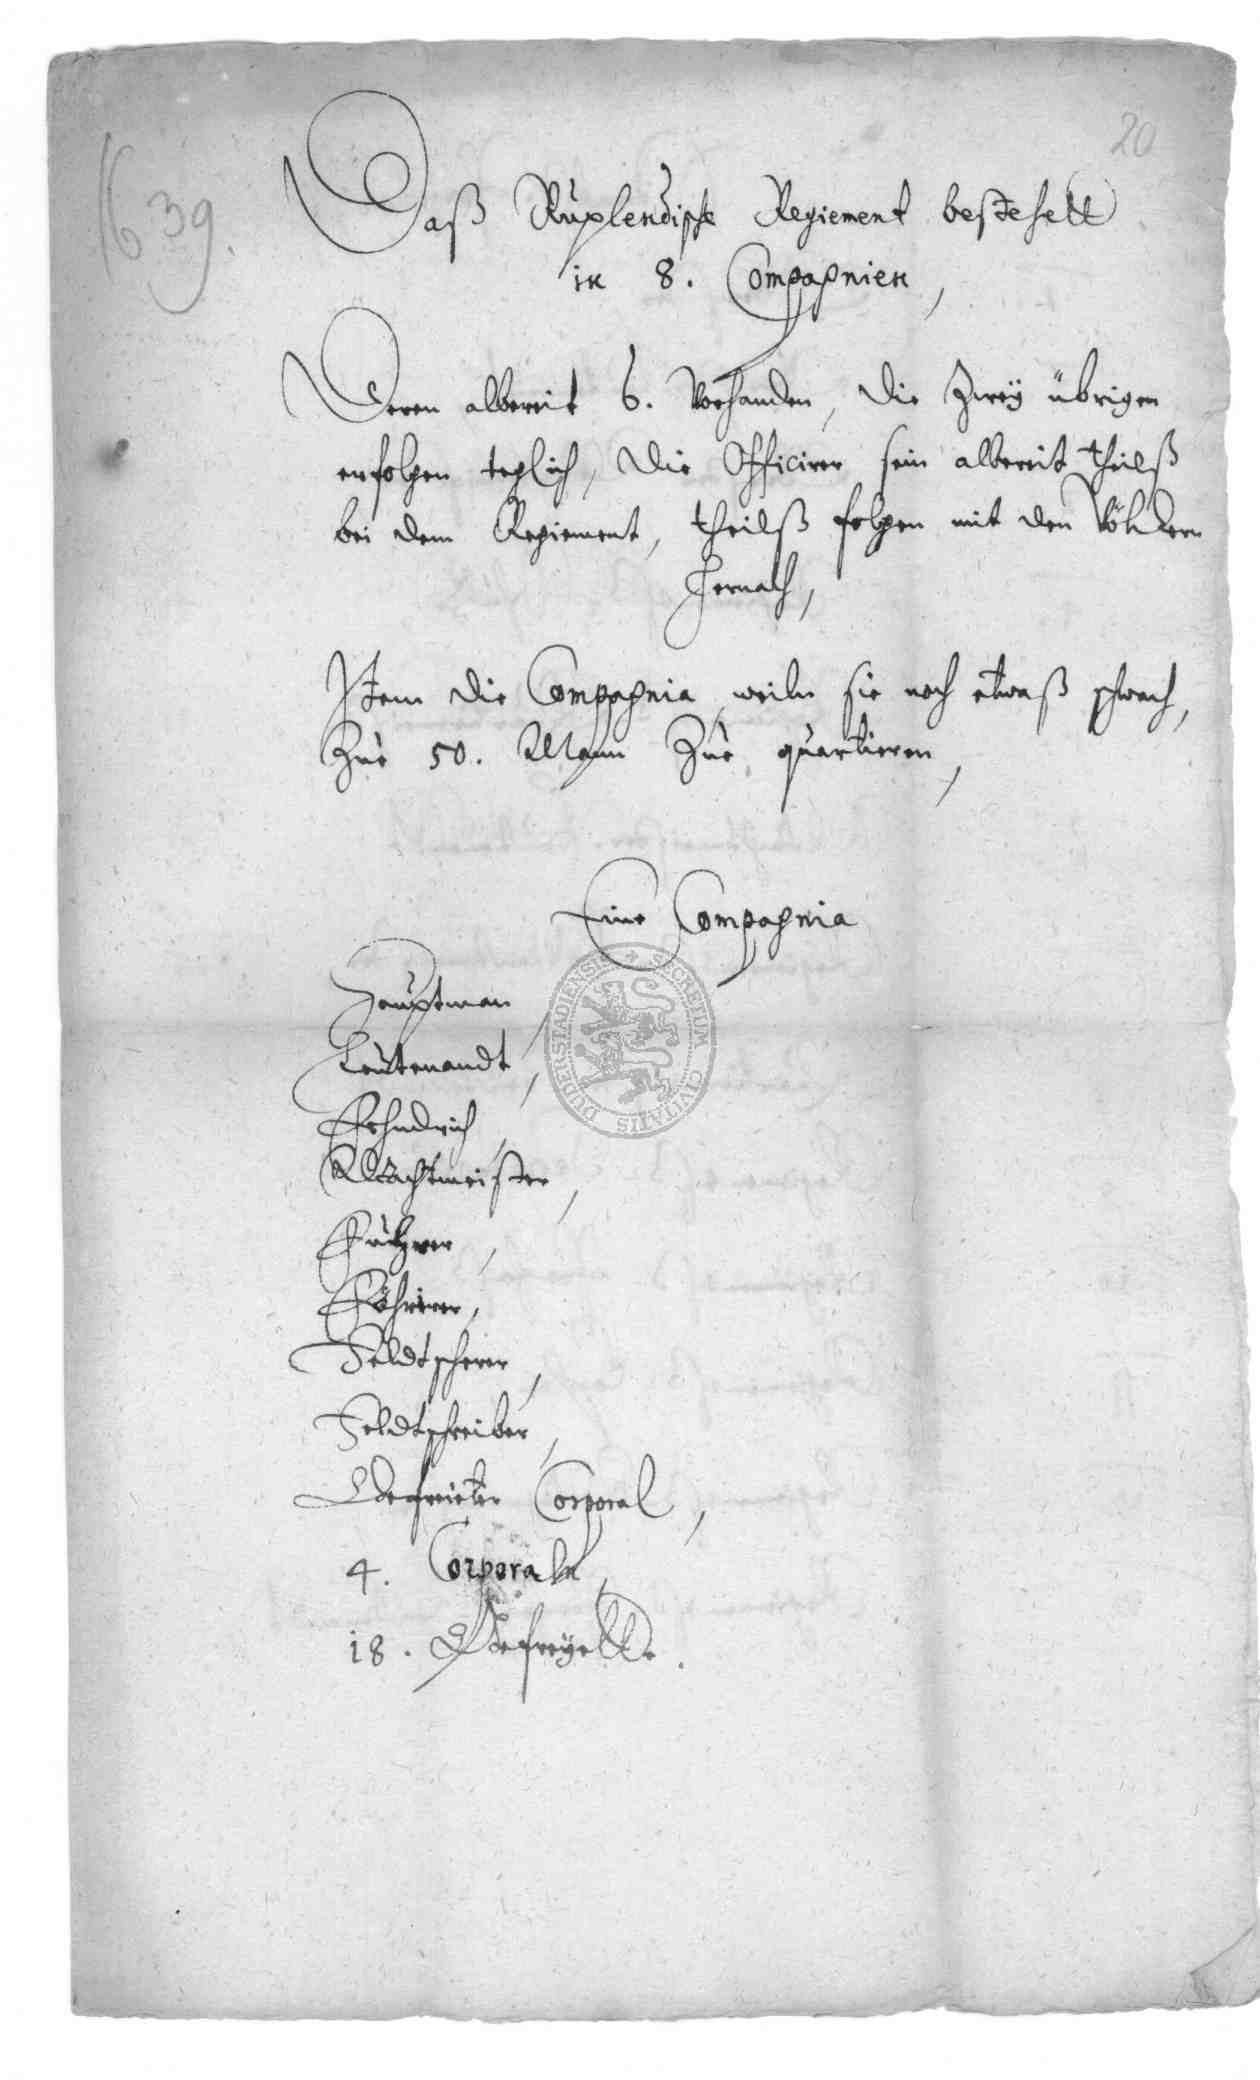 20
(639.
Daß Ruplendische Regiement bestehett
in 8. Compagnien,
Deren albereit 6. Vorhanden, die Zweÿ übrigen
erfolgen teglich, die Officirer sein albereit theilß
bei dem Regiement, theilß folgen mit den Völckern
hernach,
Item die Compagnia, weiln sie noch etwaß schwach,
Zue 50. Mann Zue quartieren,
Eine Compagnia
Hauptman,
Leutenandt,
Fehndrich,
Wachtmeister,
Führer,
Föhrirer,
Feldtscherer,
Feldtschreiber,
Gefreieter Corporal,
4. Corporaln,
18. Gefreÿette.
SECRETUM CIVITATIS DUDERSTADIENSIS